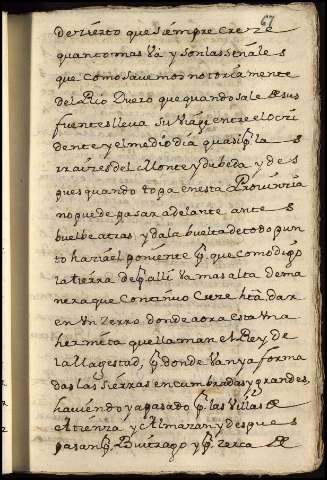 67
dezierto que siempre creze
quanto mas va y son las señales
que como savemos notoriamente
del Rio Duero que quando sale de sus
fuentes lleva su viaje entre el occi
dente y el medio dia quasi por la
s raizes del Monte Ydubeda y des
pues quando topa en esta Provinzia
no puede pasar adelante antes
buelbe atras y da la buelta de todo pun
to hazia el poniente pr. que como digo
la tierra de pr. alli va mas alta de ma
nera que continuo creze hta. dar
en un zerro donde aora esta una
hermita que llaman el Rey de
la Magestad, pr. donde van ya forma
das las sierras encumbradas y grandes,
haviendo ya pasado pr. las villas de
Atienza y Almazan y despues
pasan pr. Buitrago y pr. zerca de